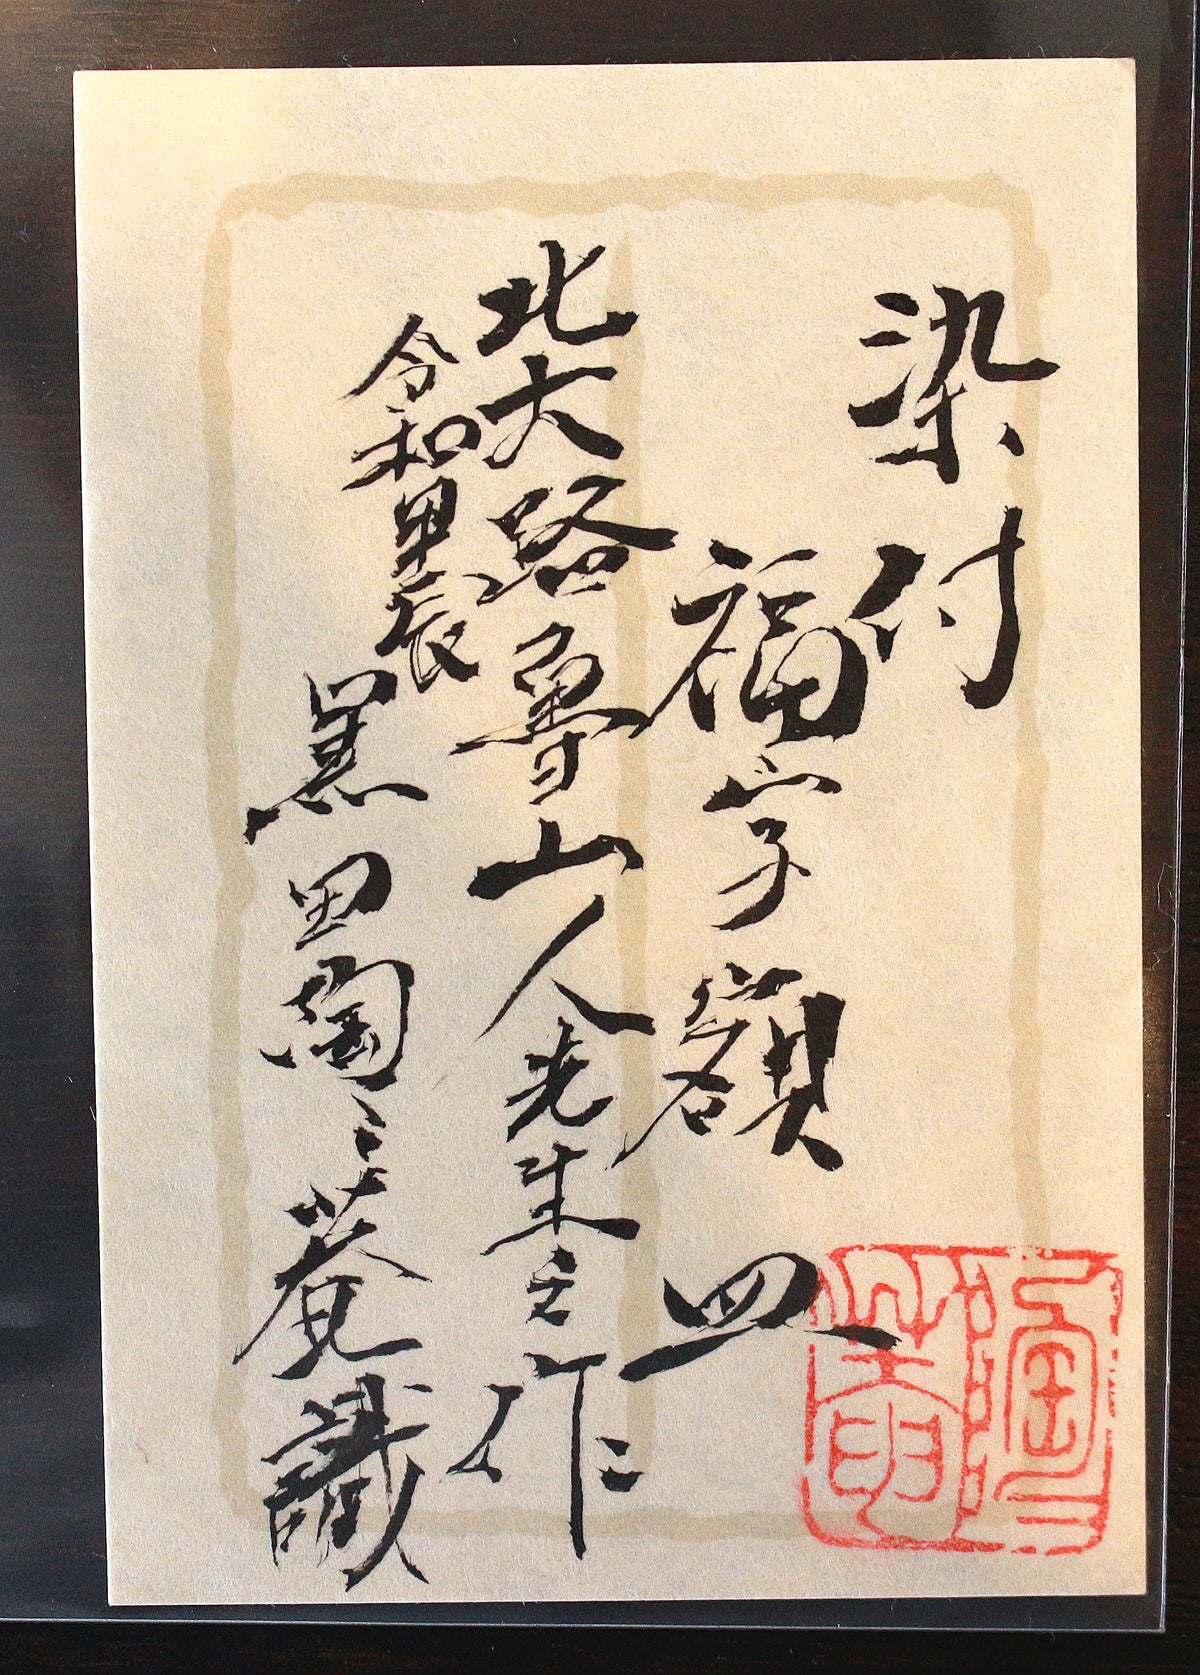 染付
福字額皿
北大路魯山人先生之作
令和甲辰
黒田陶々菴識
陶々菴